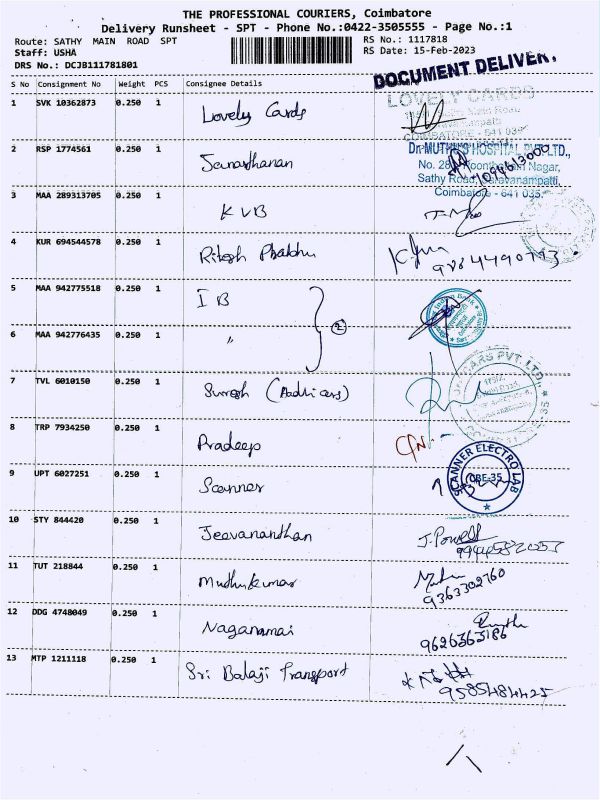 THE PROFESSIONAL COURIERS, Coimbatore
Delivery Runsheet - SPT - Phone No.:0422-3505555 - Page No.:1
Route: SATHY MAIN ROAD SPT RS No.: 1117818
Staff: USHA RS Date: 15-Feb-2023
DRS No.: DCJB111781801
DOCUMENT DELIVER
S No Consignment No Weight PCS Consignee Details
1 SVK 10362873 0.250 1 Lovely Cards
LOVELY CARDS
COIMBATORE - 641 035
2 RSP 1774561 0.250 1 Janarthanan
Dr. MUTHU'S HOSPITAL PVT LTD.,
Nagar,
Sathy Road, Saravanampatti,
Coimbatore - 641 035.
3 MAA 289313705 0.250 1 KVB
4 KUR 694544578 0.250 1 Ritesh Prabhu
5 MAA 942775518 0.250 1 IB
2
6 MAA 942776435 0.250 1 〃
7 TVL 6010150 0.250 1 Suresh (Aadhi cars)
CARS PVT. LTD.
8 TRP 7934250 0.250 1 Pradeep
9 UPT 6027251 0.250 1 Scanner
SCANNER ELECTRO LAB
CBE-35
10 STY 844420 0.250 1 Jeevananthan J. Powell
11 TUT 218844 0.250 1 Muthukumar
9363302760
12 DDG 4748049 0.250 1 Naganamai
9626363186
13 MTP 1211118 0.250 1 Sri Balaji Transport
9585484425